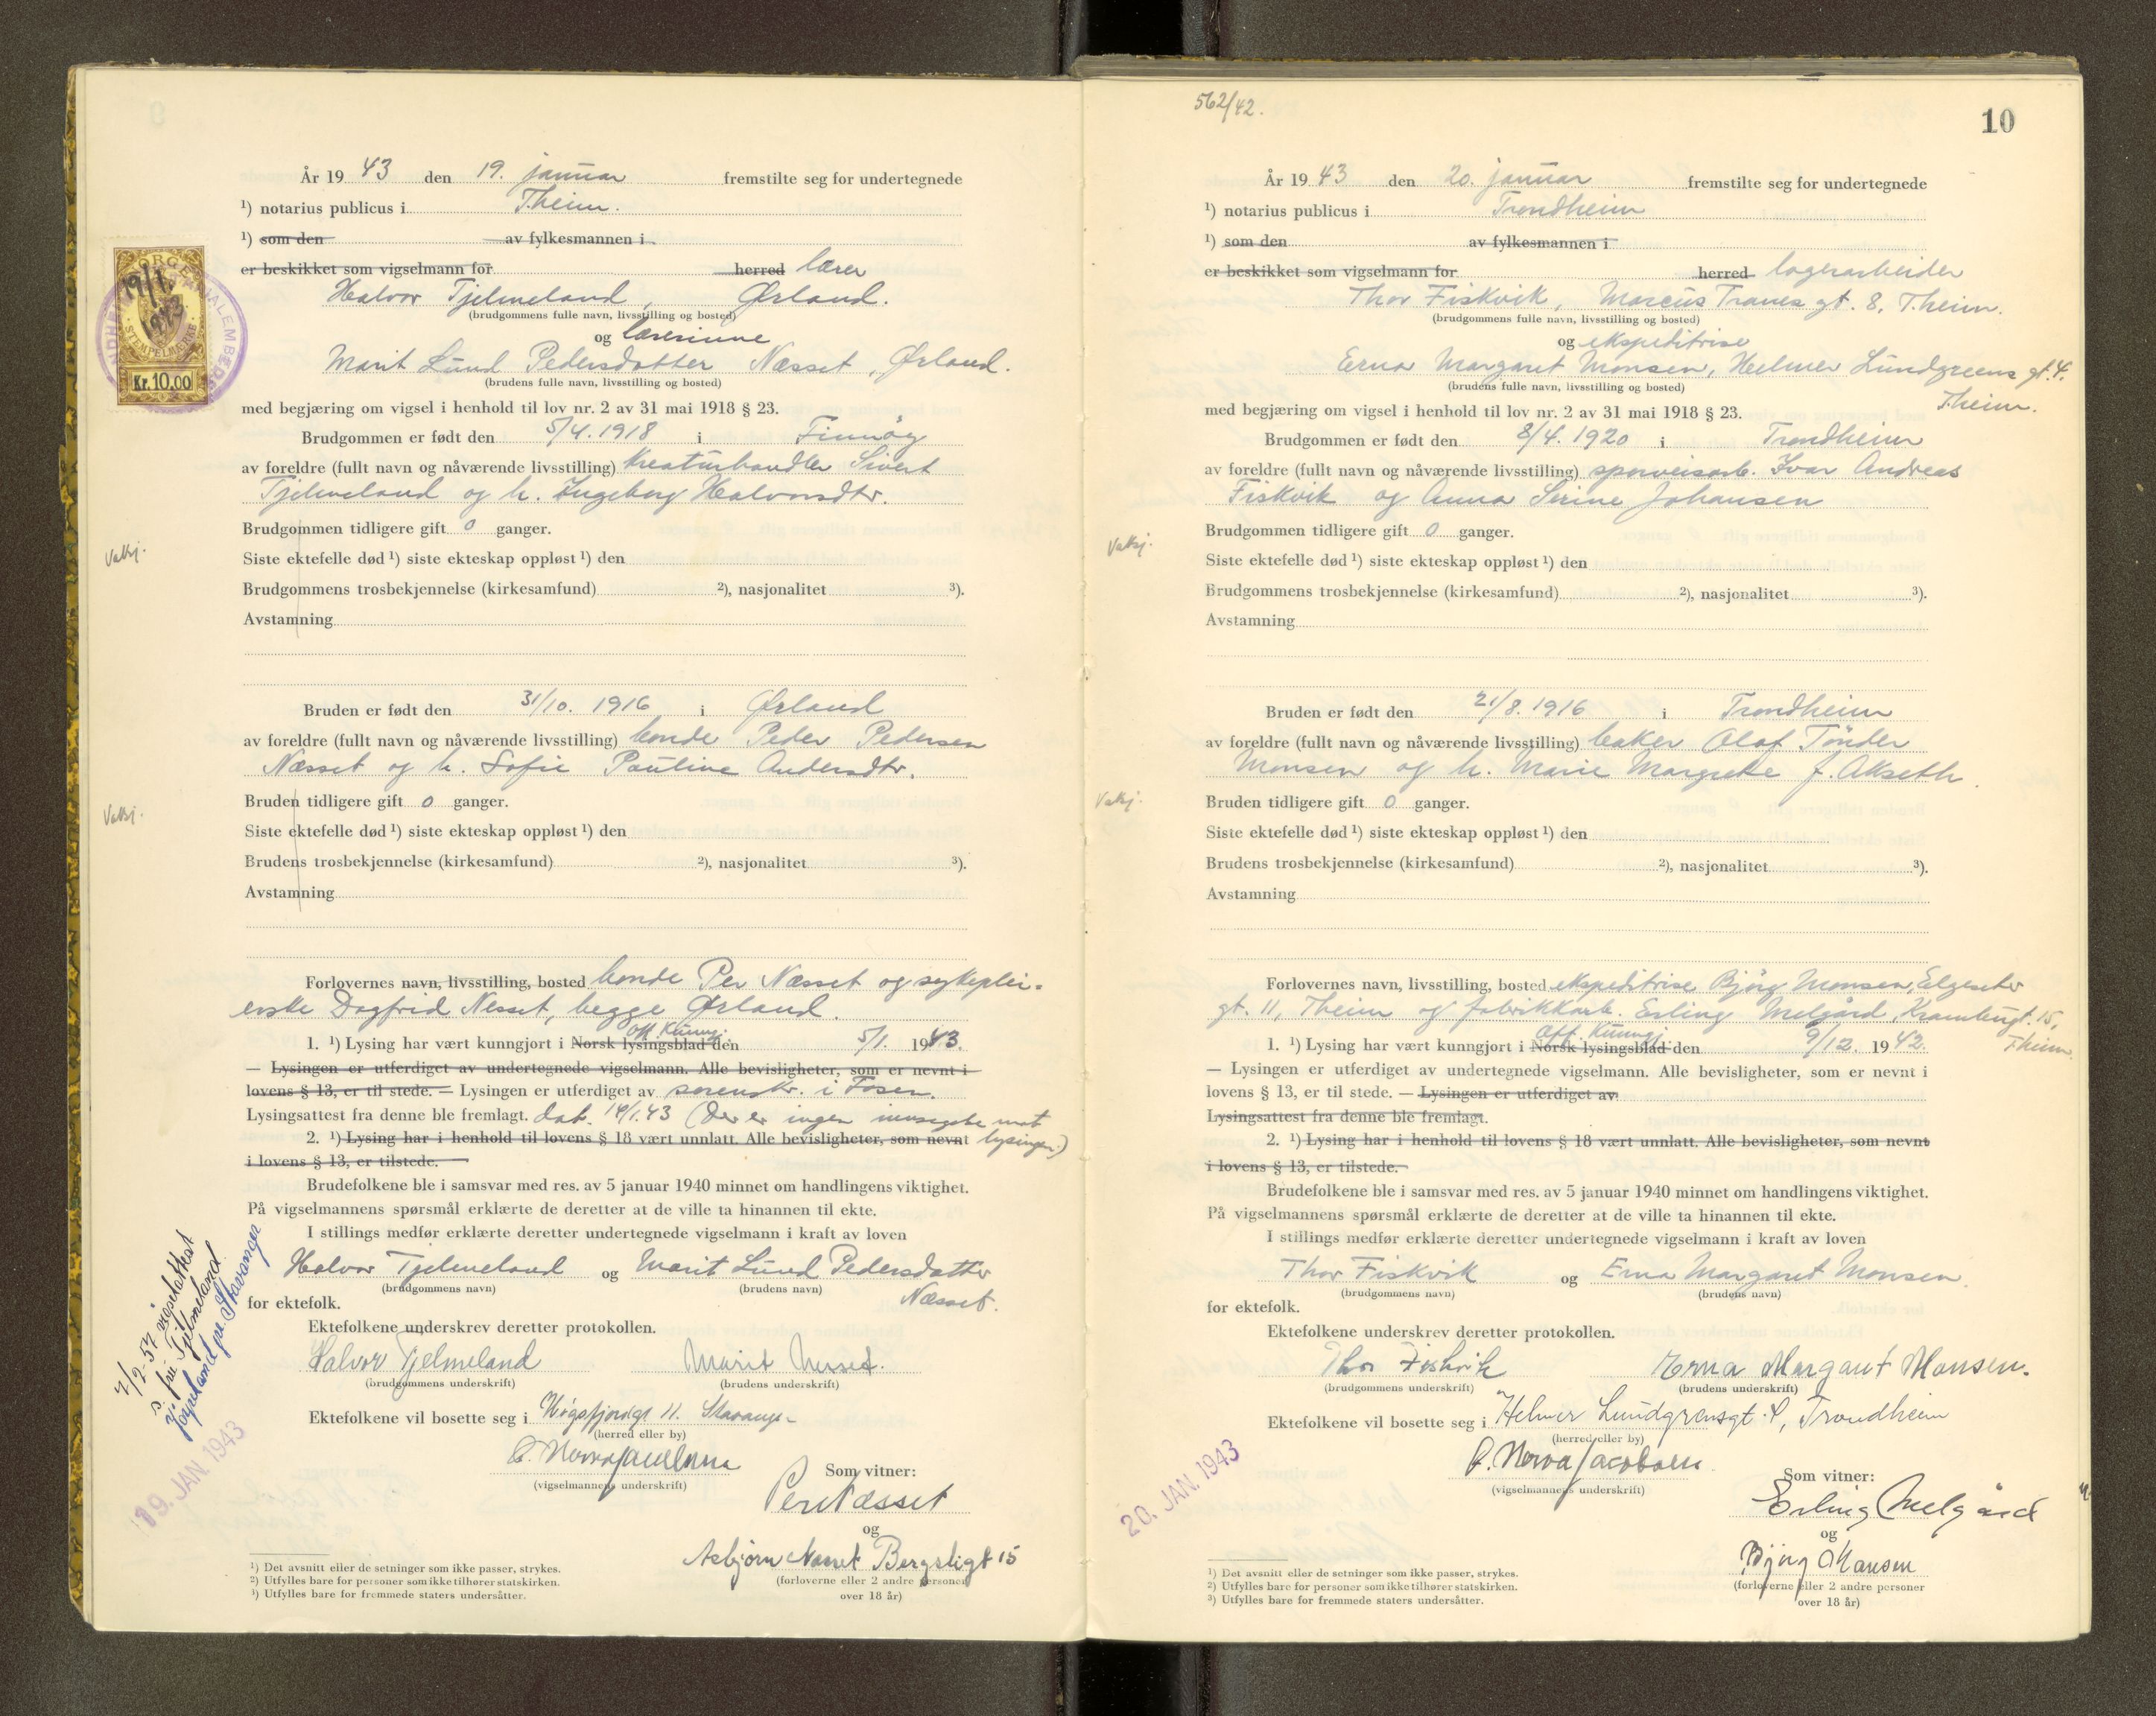 År 19 43 den 19. januar fremstilte seg for undertegnede
¹) notarius publicus i T.heim.
¹) som den av fylkesmannen i
er beskikket som vigselmann for herred lærer
Halvor Tjelmeland, Ørland.
(brudgommens fulle navn, livsstilling og bosted)
og lærerinne
Marit Lund Pedersdatter Næsset, Ørland.
(brudens fulle navn, livsstilling og bosted)
med begjæring om vigsel i henhold til lov nr. 2 av 31 mai 1918 § 23.
Brudgommen er født den 5/4. 1918 i Finnøy
av foreldre (fullt navn og nåværende livsstilling) kreaturhandler Sivert
Tjelmeland og h. Ingeborg Halvorsdtr.
Brudgommen tidligere gift 0 ganger.
Siste ektefelle død ¹) siste ekteskap oppløst ¹) den
Brudgommens trosbekjennelse (kirkesamfund) ²), nasjonalitet ³).
Avstamning
Bruden er født den 31/10. 1916 i Ørland
av foreldre (fullt navn og nåværende livsstilling) bonde Peder Pedersen
Næsset og h. Sofie Pauline Andersdtr.
Bruden tidligere gift 0 ganger.
Siste ektefelle død ¹) siste ekteskap oppløst ¹) den
Brudens trosbekjennelse (kirkesamfund) ²), nasjonalitet ³).
Avstamning
Forlovernes navn, livsstilling, bosted bonde Per Næsset og sykeplei-
erske Dagfrid Nesset, begge Ørland.
off. Kunng.
1. ¹) Lysing har vært kunngjort i Norsk lysingsblad den 5/1. 1943.
— Lysingen er utferdiget av undertegnede vigselmann. Alle bevisligheter, som er nevnt i
lovens § 13, er til stede. — Lysingen er utferdiget av sorenskr. i Fosen.
Lysingsattest fra denne ble fremlagt. dat. 14/1.43 (Der er ingen innsigelse mot
2. ¹) Lysing har i henhold til lovens § 18 vært unnlatt. Alle bevisligheter, som nevnt lysingen.)
i lovens § 13, er tilstede.
Brudefolkene ble i samsvar med res. av 5 januar 1940 minnet om handlingens viktighet.
På vigselmannens spørsmål erklærte de deretter at de ville ta hinannen til ekte.
I stillings medfør erklærte deretter undertegnede vigselmann i kraft av loven
Halvor Tjelmeland og Marit Lund Pedersdatter
(brudgommens navn) (brudens navn) Næsset.
for ektefolk.
Ektefolkene underskrev deretter protokollen.
Halvor Tjelmeland Marit Nesset.
(brudgommens underskrift) (brudens underskrift)
Ektefolkene vil bosette seg i Høgsfjordgt 11. Stavanger
(herred eller by)
(vigselmannens underskrift)
Som vitner:
Per Næsset
og
Asbjørn Næsset Bergsligt 15
(forloverne eller 2 andre personer
over 18 år)
¹) Det avsnitt eller de setninger som ikke passer, strykes.
²) Utfylles bare for personer som ikke tilhører statskirken.
³) Utfylles bare for fremmede staters undersåtter.
19/1.
1943
STEMPELMERKE
Kr. 10.00
Vaksj.
Vaksj.
vigselattest
fru Tjelmeland
Jørpeland pr. Stavanger
19. JAN. 1943
562/42.
10
År 19 43 den 20. januar fremstilte seg for undertegnede
¹) notarius publicus i Trondheim
¹) som den av fylkesmannen i
er beskikket som vigselmann for herred lagerarbeider
Thor Fiskvik, Marcus Tranes gt. 8, T.heim.
(brudgommens fulle navn, livsstilling og bosted)
og ekspeditrise
Erna Margaret Monsen, Helmer Lundgreens gt. 4.
(brudens fulle navn, livsstilling og bosted)
T.heim.
med begjæring om vigsel i henhold til lov nr. 2 av 31 mai 1918 § 23.
Brudgommen er født den 8/4. 1920 i Trondheim
av foreldre (fullt navn og nåværende livsstilling) sporveisarb. Ivar Andreas
Fiskvik og Anna Serine Johansen
Brudgommen tidligere gift 0 ganger.
Siste ektefelle død ¹) siste ekteskap oppløst ¹) den
Brudgommens trosbekjennelse (kirkesamfund) ²), nasjonalitet ³).
Avstamning
Bruden er født den 21/8. 1916 i Trondheim
av foreldre (fullt navn og nåværende livsstilling) baker Olaf Tønder
Monsen og h. Marie Margrete f. Akseth.
Bruden tidligere gift 0 ganger.
Siste ektefelle død ¹) siste ekteskap oppløst ¹) den
Brudens trosbekjennelse (kirkesamfund) ²), nasjonalitet ³).
Avstamning
Forlovernes navn, livsstilling, bosted ekspeditrise Bjørg Monsen, Elgeseter
gt. 11, T.heim og fabrikkarb. Erling Melgård, Krambugt. 15,
off. Kunngj. T.heim.
1. ¹) Lysing har vært kunngjort i Norsk lysingsblad den 9/12. 1942.
— Lysingen er utferdiget av undertegnede vigselmann. Alle bevisligheter, som er nevnt i
lovens § 13, er til stede. — Lysingen er utferdiget av
Lysingsattest fra denne ble fremlagt.
2. ¹) Lysing har i henhold til lovens § 18 vært unnlatt. Alle bevisligheter, som nevnt
i lovens § 13, er tilstede.
Brudefolkene ble i samsvar med res. av 5 januar 1940 minnet om handlingens viktighet.
På vigselmannens spørsmål erklærte de deretter at de ville ta hinannen til ekte.
I stillings medfør erklærte deretter undertegnede vigselmann i kraft av loven
Thor Fiskvik og Erna Margaret Monsen.
(brudgommens navn) (brudens navn)
for ektefolk.
Ektefolkene underskrev deretter protokollen.
Thor Fiskvik Erna Margaret Monsen.
(brudgommens underskrift) (brudens underskrift)
Ektefolkene vil bosette seg i Helmer Lundgrensgt. 4, Trondheim
(herred eller by)
(vigselmannens underskrift)
Som vitner:
Erling Melgård
og
Bjørg Monsen
(forloverne eller 2 andre personer
over 18 år)
¹) Det avsnitt eller de setninger som ikke passer, strykes.
²) Utfylles bare for personer som ikke tilhører statskirken.
³) Utfylles bare for fremmede staters undersåtter.
Vaksj.
Vaksj.
20. JAN. 1943